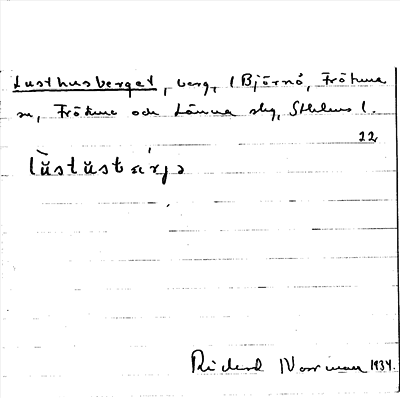 Lusthusberget, berg, l Björnö, Frötuna
sn, Frötuna och Länna slg, Sthlms l.
22
lŭstŭstbærjə
Rickard Norrman 1934.